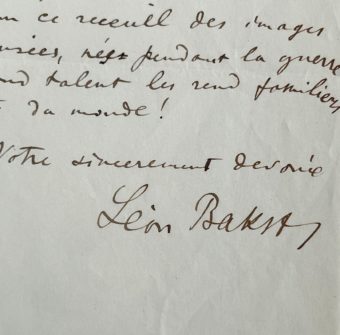 ce recueil des images
nées pendant la guerre
talent les rend familiers
du monde!
Votre sincerement devoué
Léon Bakst